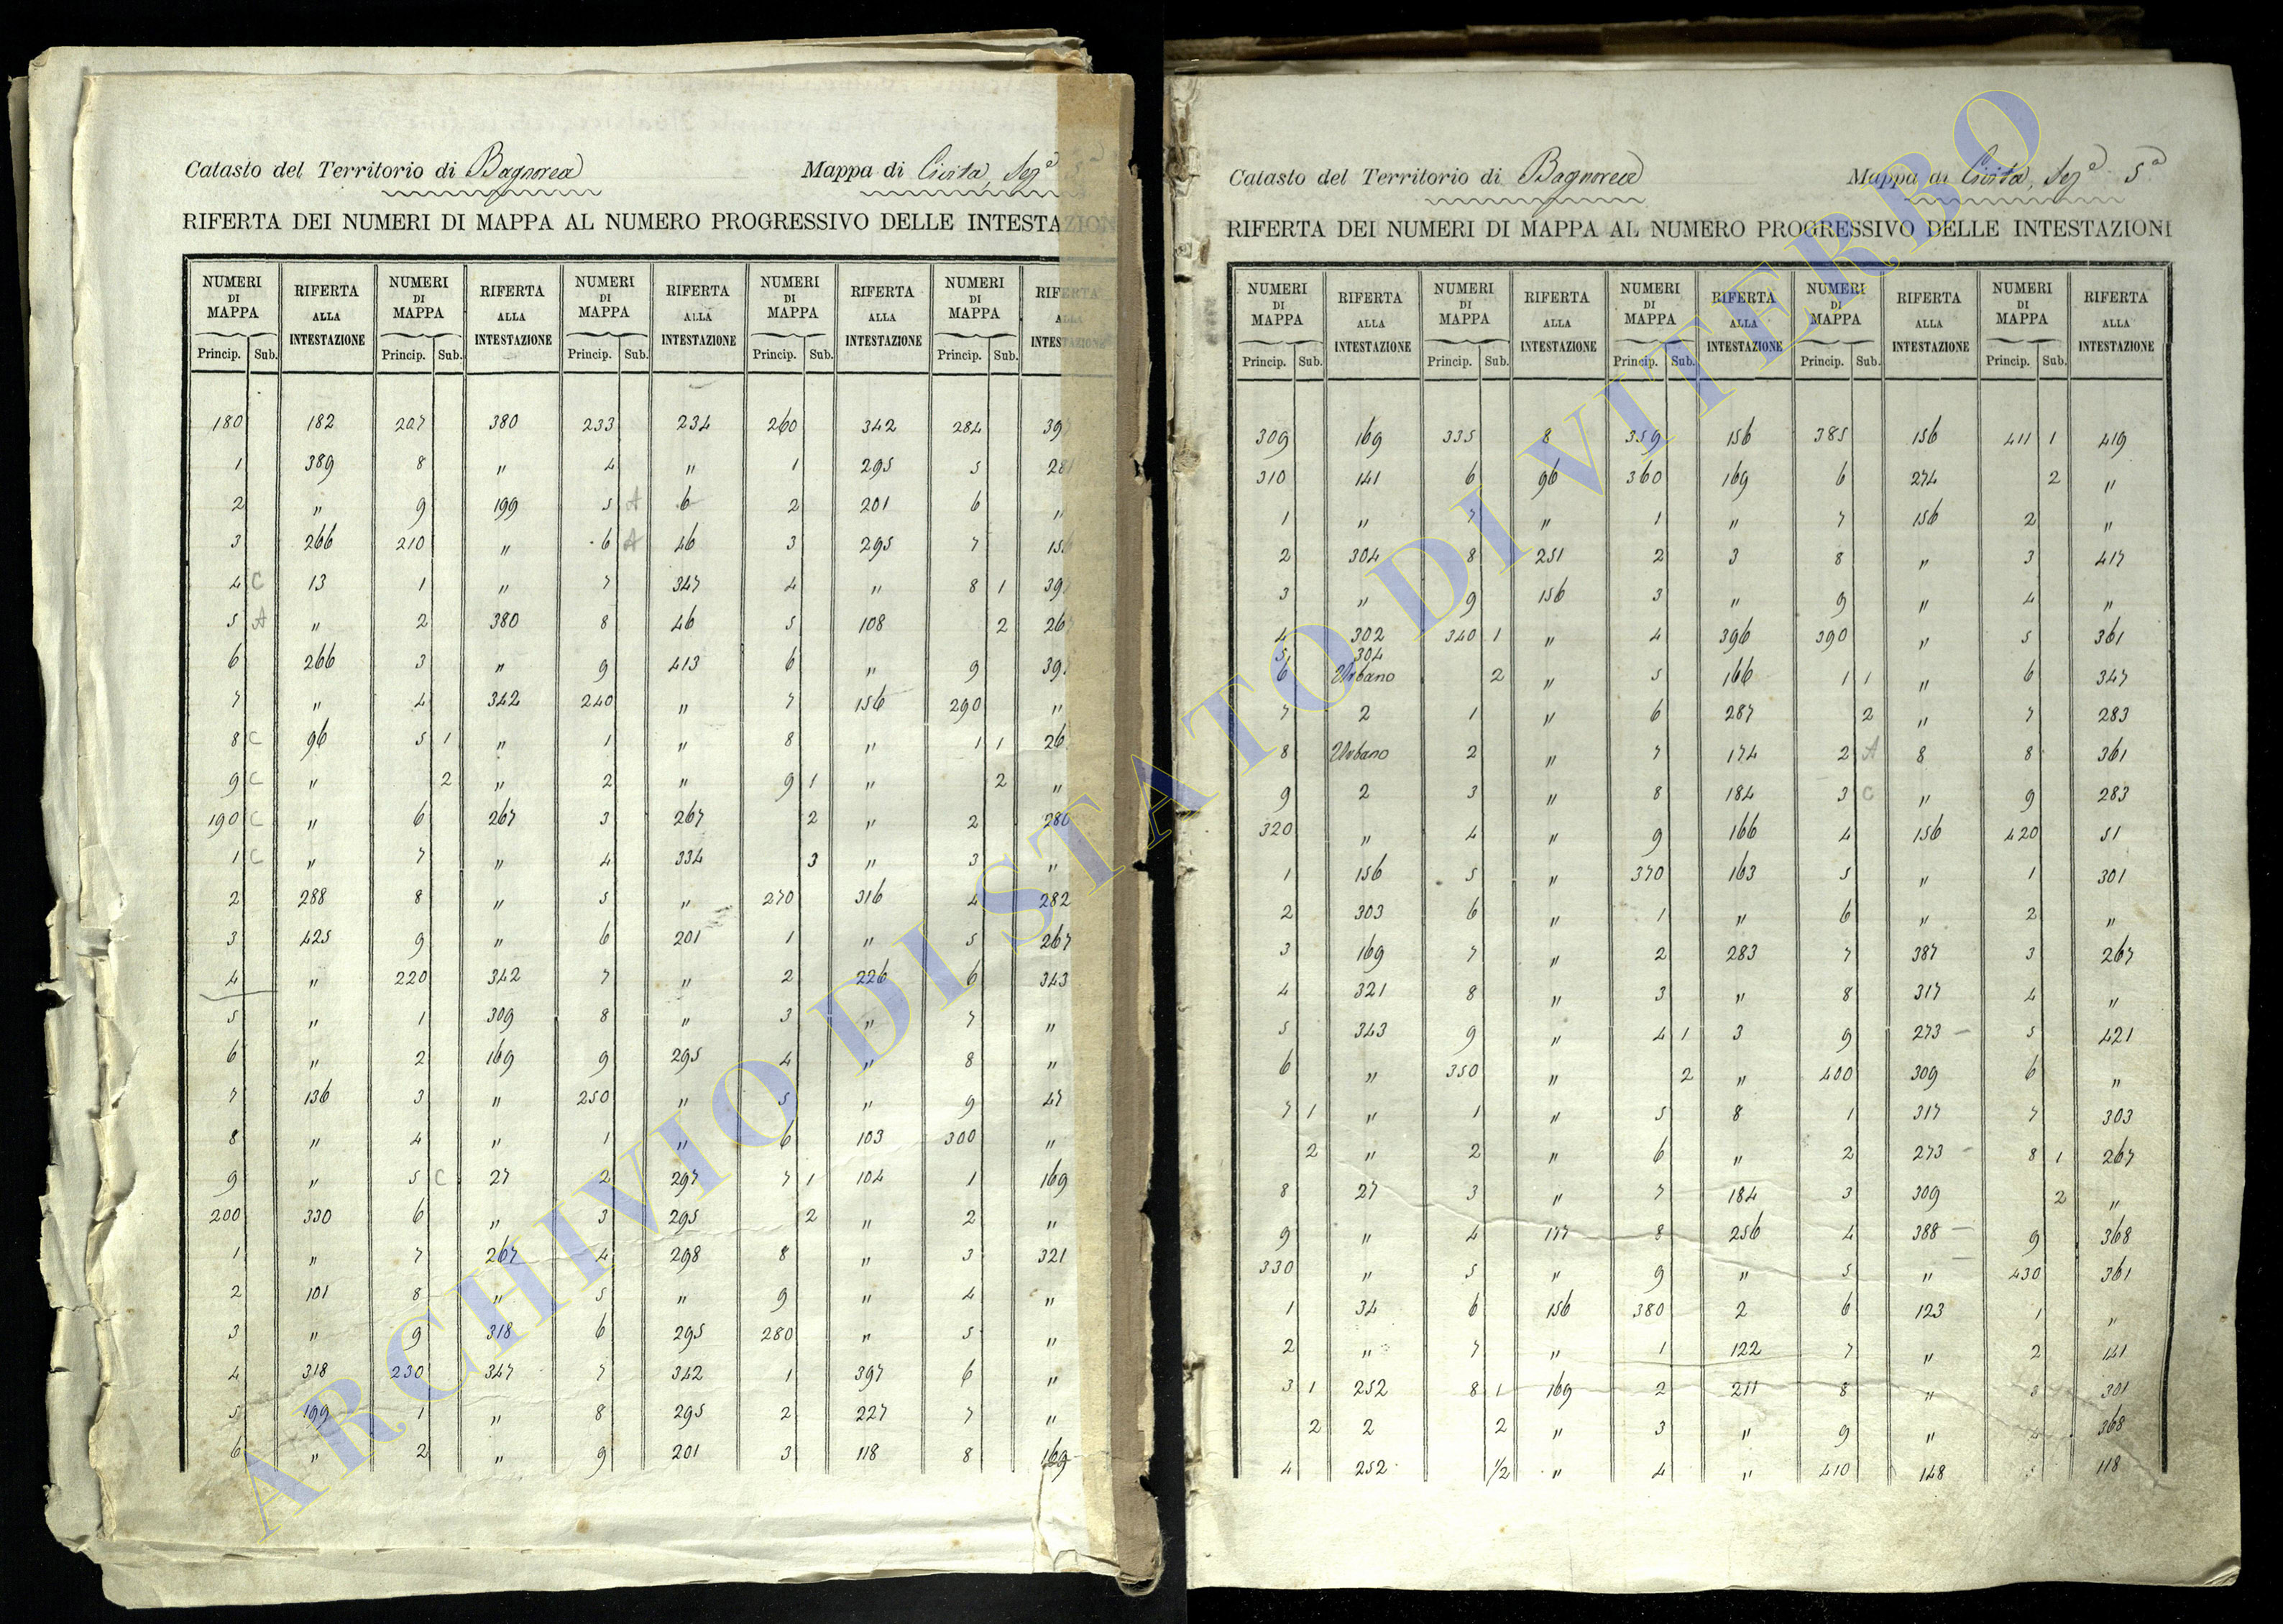 Catasto del Territorio di Bagnorea Mappa di Civita, Sez.ª 5ª
RIFERTA DEI NUMERI DI MAPPA AL NUMERO PROGRESSIVO DELLE INTESTAZION
NUMERI DI MAPPA RIFERTA ALLA INTESTAZIONE NUMERI DI MAPPA RIFERTA ALLA INTESTAZIONE NUMERI DI MAPPA RIFERTA ALLA INTESTAZIONE NUMERI DI MAPPA RIFERTA ALLA INTESTAZIONE NUMERI DI MAPPA RIFERTA ALLA INTESTAZIONE
Princip. Sub. Princip. Sub. Princip. Sub. Princip. Sub. Princip. Sub.
180 182 207 380 233 234 260 342 284 39
1 389 8 " 4 " 1 295 5 28
2 " 9 199 5 A 6 2 201 6 "
3 266 210 " 6 A 46 3 295 7 15
4 C 13 1 " 7 347 4 " 8 1 39
5 A " 2 380 8 46 5 108 2 26
6 266 3 " 9 413 6 " 9 39
7 " 4 342 240 " 7 156 290 "
8 C 96 5 1 " 1 " 8 " 1 1 26
9 C " 2 " 2 " 9 1 " 2 "
190 C " 6 267 3 267 2 " 2 280
1 C " 7 " 4 334 3 " 3 "
2 288 8 " 5 " 270 316 4 282
3 425 9 " 6 201 1 " 5 267
4 " 220 342 7 " 2 226 6 343
5 " 1 309 8 " 3 " 7 "
6 " 2 169 9 295 4 " 8 "
7 136 3 " 250 " 5 " 9 47
8 " 4 " 1 " 6 103 300 "
9 " 5 C 27 2 297 7 1 104 1 169
200 330 6 " 3 295 2 " 2 "
1 " 7 267 4 298 8 " 3 321
2 101 8 " 5 " 9 " 4 "
3 " 9 318 6 295 280 " 5 "
4 318 230 347 7 342 1 397 6 "
5 199 1 " 8 295 2 227 7 "
6 " 2 " 9 201 3 118 8 169
Catasto del Territorio di Bagnorea Mappa di Civita, Sez.ª 5ª
RIFERTA DEI NUMERI DI MAPPA AL NUMERO PROGRESSIVO DELLE INTESTAZIONI
NUMERI DI MAPPA RIFERTA ALLA INTESTAZIONE NUMERI DI MAPPA RIFERTA ALLA INTESTAZIONE NUMERI DI MAPPA RIFERTA ALLA INTESTAZIONE NUMERI DI MAPPA RIFERTA ALLA INTESTAZIONE NUMERI DI MAPPA RIFERTA ALLA INTESTAZIONE
Princip. Sub. Princip. Sub. Princip. Sub. Princip. Sub. Princip. Sub.
309 169 335 8 359 156 385 156 411 1 419
310 141 6 96 360 169 6 274 2 "
1 " 7 " 1 " 7 156 2 "
2 304 8 251 2 3 8 " 3 417
3 " 9 156 3 " 9 " 4 "
4 302 340 1 " 4 396 390 " 5 361
5 304
6 Urbano 2 " 5 166 1 1 " 6 347
7 2 1 " 6 287 2 " 7 283
8 Urbano 2 " 7 174 2 A 8 8 361
9 2 3 " 8 184 3 C " 9 283
320 " 4 " 9 166 4 156 420 51
1 156 5 " 370 163 5 " 1 301
2 303 6 " 1 " 6 " 2 "
3 169 7 " 2 283 7 387 3 267
4 321 8 " 3 " 8 317 4 "
5 343 9 " 4 1 3 9 273 5 421
6 " 350 " 2 " 400 309 6 "
7 1 " 1 " 5 8 1 317 7 303
2 " 2 " 6 " 2 273 8 1 267
8 27 3 " 7 184 3 309 2 "
9 " 4 177 8 256 4 388 9 368
330 " 5 " 9 " 5 " 430 361
1 34 6 156 380 2 6 123 1 "
2 " 7 " 1 122 7 " 2 141
3 1 252 8 1 169 2 211 8 " 301
2 2 2 " 3 " 9 " 368
4 252 1/2 " 4 " 410 148 118
ARCHIVIO DI STATO DI VITERBO